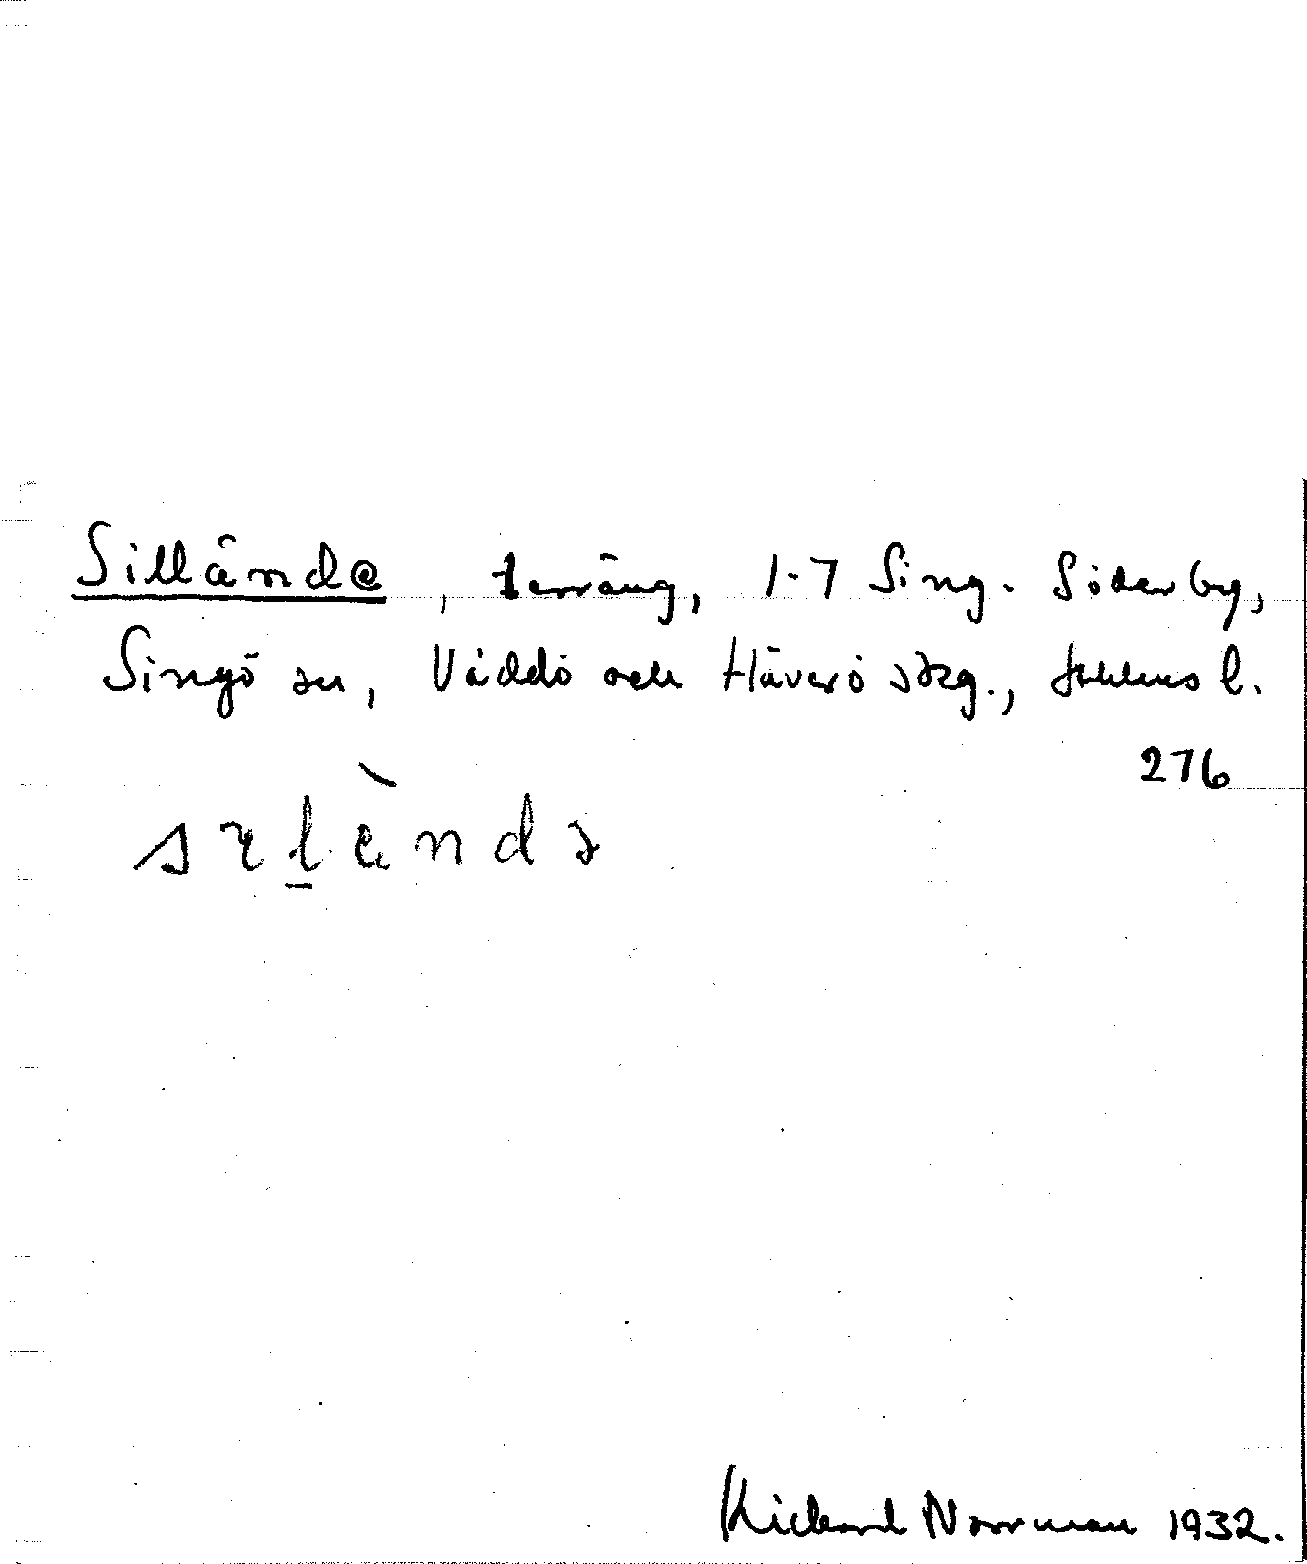 Sillända, terräng, 1-7 Sing. Söderby,
Singö sn, Väddö och Häverö skg., Sthlms l.
276
Rickard Norrman 1932.